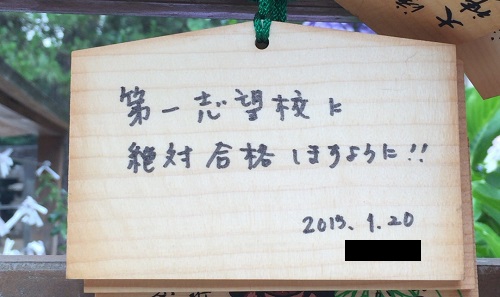 第一志望校に
絶対合格しますように!!
2015.1.20